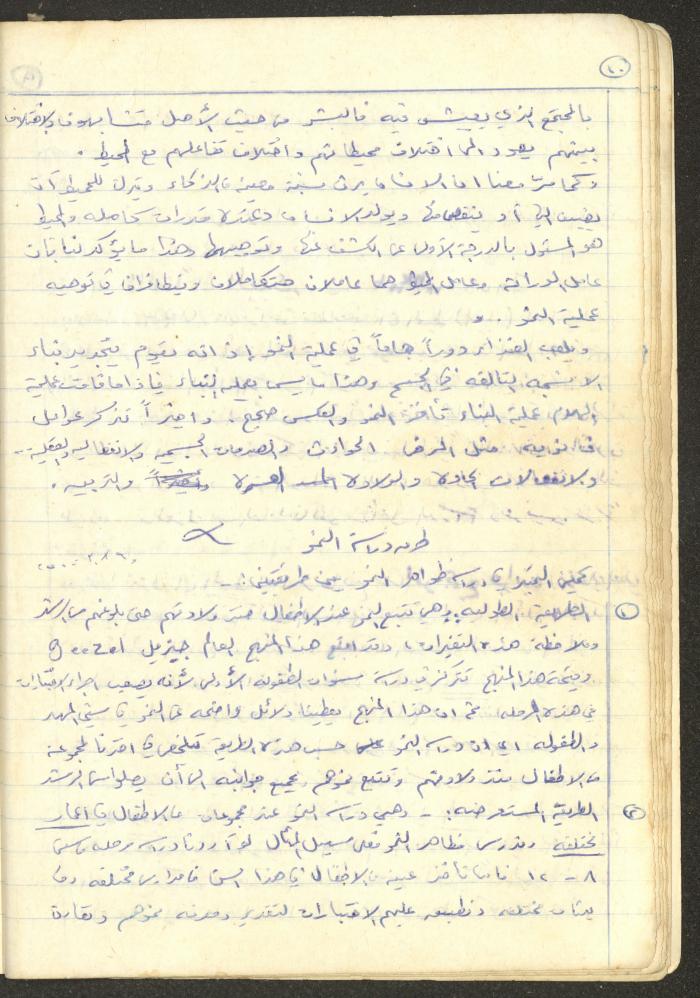 ١٠
بالمجتمع الذي يعيش فيه فالبشر من حيث الأصل متشابهون والاختلاف
بينهم يعود الى اختلاف محيطاتهم واختلاف تفاعلهم مع المحيط .
وكما مرّ معنا ان الانسان يرث نسبة معينة من الذكاء ويترك للمحيط أن
يضيف اليها أو ينقص منها ويولد الانسان وعنده قدرات كامله والمحيط
هو المسئول بالدرجة الأولى عن الكشف عنها وتوجيهها وهذا ما يؤكد لنا بأن
عامل الوراثة وعامل المحيط هما عاملان متكاملان ويتظافران في توجيه
عملية النمو . و
ويلعب الغذاء دوراً هاماً في عملية النمو إذ انه يقوم بتجديد بناء
الانسجه التالفه في الجسم وهذا ما يسمى بعملية البناء فإذا ما فاقت عملية
الهدم عملية البناء تأخر النمو والعكس صحيح . واخيراً نذكر عوامل
ثانويه مثل المرض الحوادث والصدمات الجسميه والانفعاليه والعقلية ..
والانفعالات الحادة والولادة العسرة والتربيه .
طرق دراسة النمو
يمكن التمييز في دراسة ظواهر النمو بين طريقتين : -
١ الطريقة الطوليه : وهي تتبع النمو عند الاطفال منذ ولادتهم حتى بلوغهم سن الرشد
وملاحظة هذه التغيرات ، وقد اتبع هذا المنهج العالم جيزيل geezel
وقيمة هذا المنهج تتركز في دراسة سنوات الطفوله الأولى لأنه يصعب اجراء الاختبارات
في هذه المرحله ثم ان هذا المنهج يعطينا دلائل واضحه عن النمو في سني المهد
والطفوله اي ان دراسة النمو حسب هذه الطريقة تتلخص في اختيارنا لمجموعة
من الاطفال منذ ولادتهم وتتبع نموهم بجميع جوانبه الى أن يصلوا سن الرشد
٢ الطريقة المستعرضه : - وهي دراسة النمو عند مجموعات من الاطفال في أعمار
مختلفه وندرس مظاهر النمو فعلى سبيل المثال لو أردنا دراسة مرحله من سن
٨ - ١٢ فاننا نأخذ عينه من الاطفال في هذا السن من مدارس مختلفه ومن
بيئات مختلفه ونطبق عليهم الاختبارات لتقدير ومعرفه نموهم ومقارنة